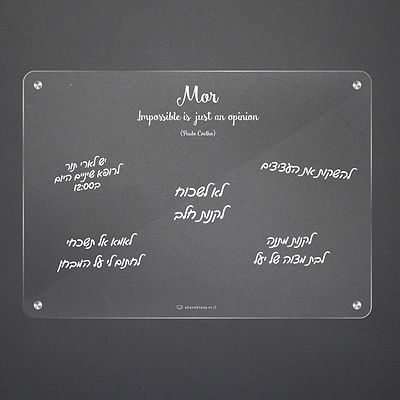 Mor
Impossible is just an opinion
(Paulo Coelho)
יש לארי תור
לרופא שיניים היום
ב12:00
להשקות את העציצים
לא לשכוח
לקנות חלב
לאמא אל תשכחי
לחתום לי על המבחן
לקנות מתנה
לבת מצוה של יעל